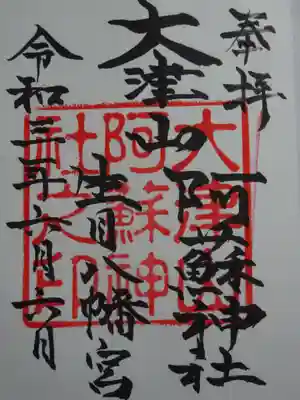 奉拝
大津山
阿蘇神社
生目八幡宮
令和三年六月六日
大津山
阿蘇神
社之印